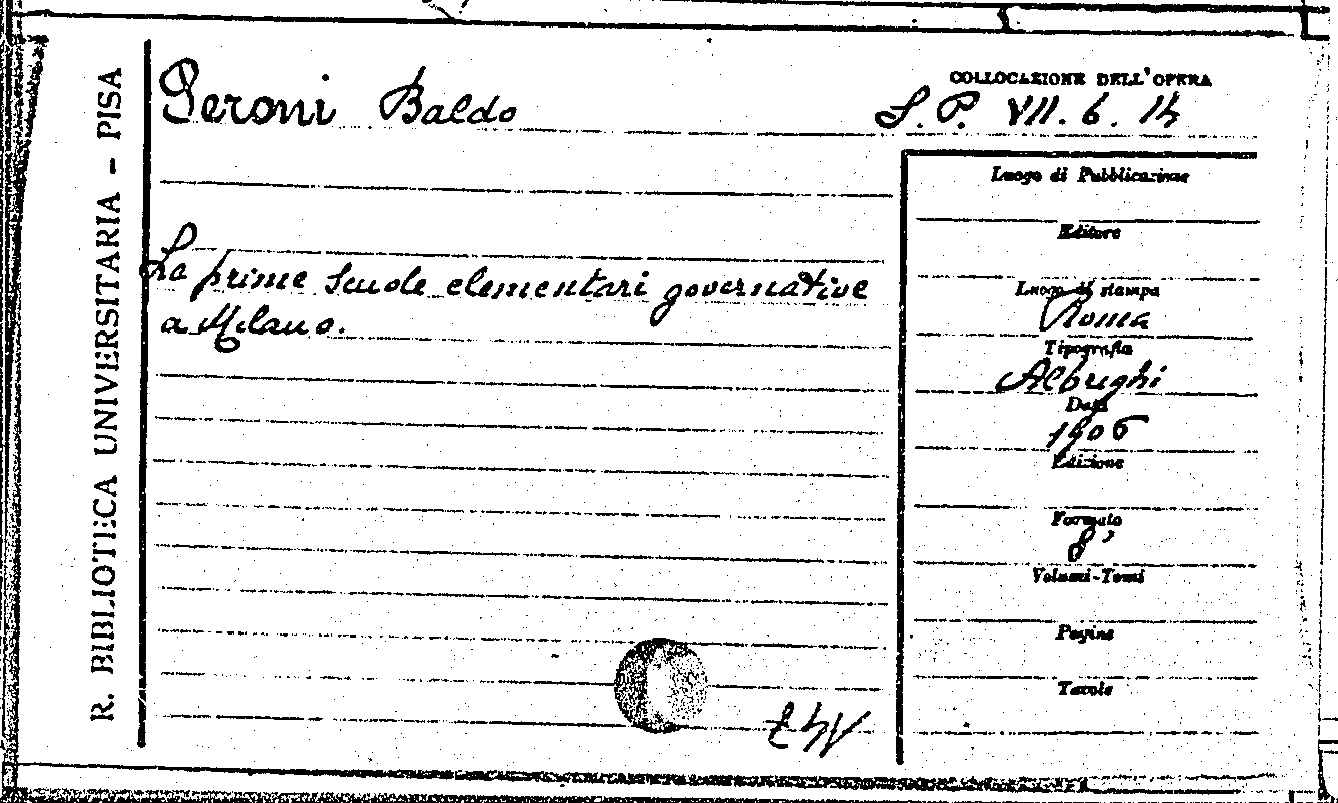 R. BIBLIOTECA UNIVERSITARIA - PISA
Peroni Baldo
COLLOCAZIONE DELL'OPERA
S. P. VII. 6. 14
La prime scuole elementari governative
a Milano.
Luogo di Pubblicazione
Editore
Luogo di stampa
Roma
Tipografia
Albrighi
Data
1906
Edizione
Formato
8°
Volumi-Tomi
Pagine
Tavole